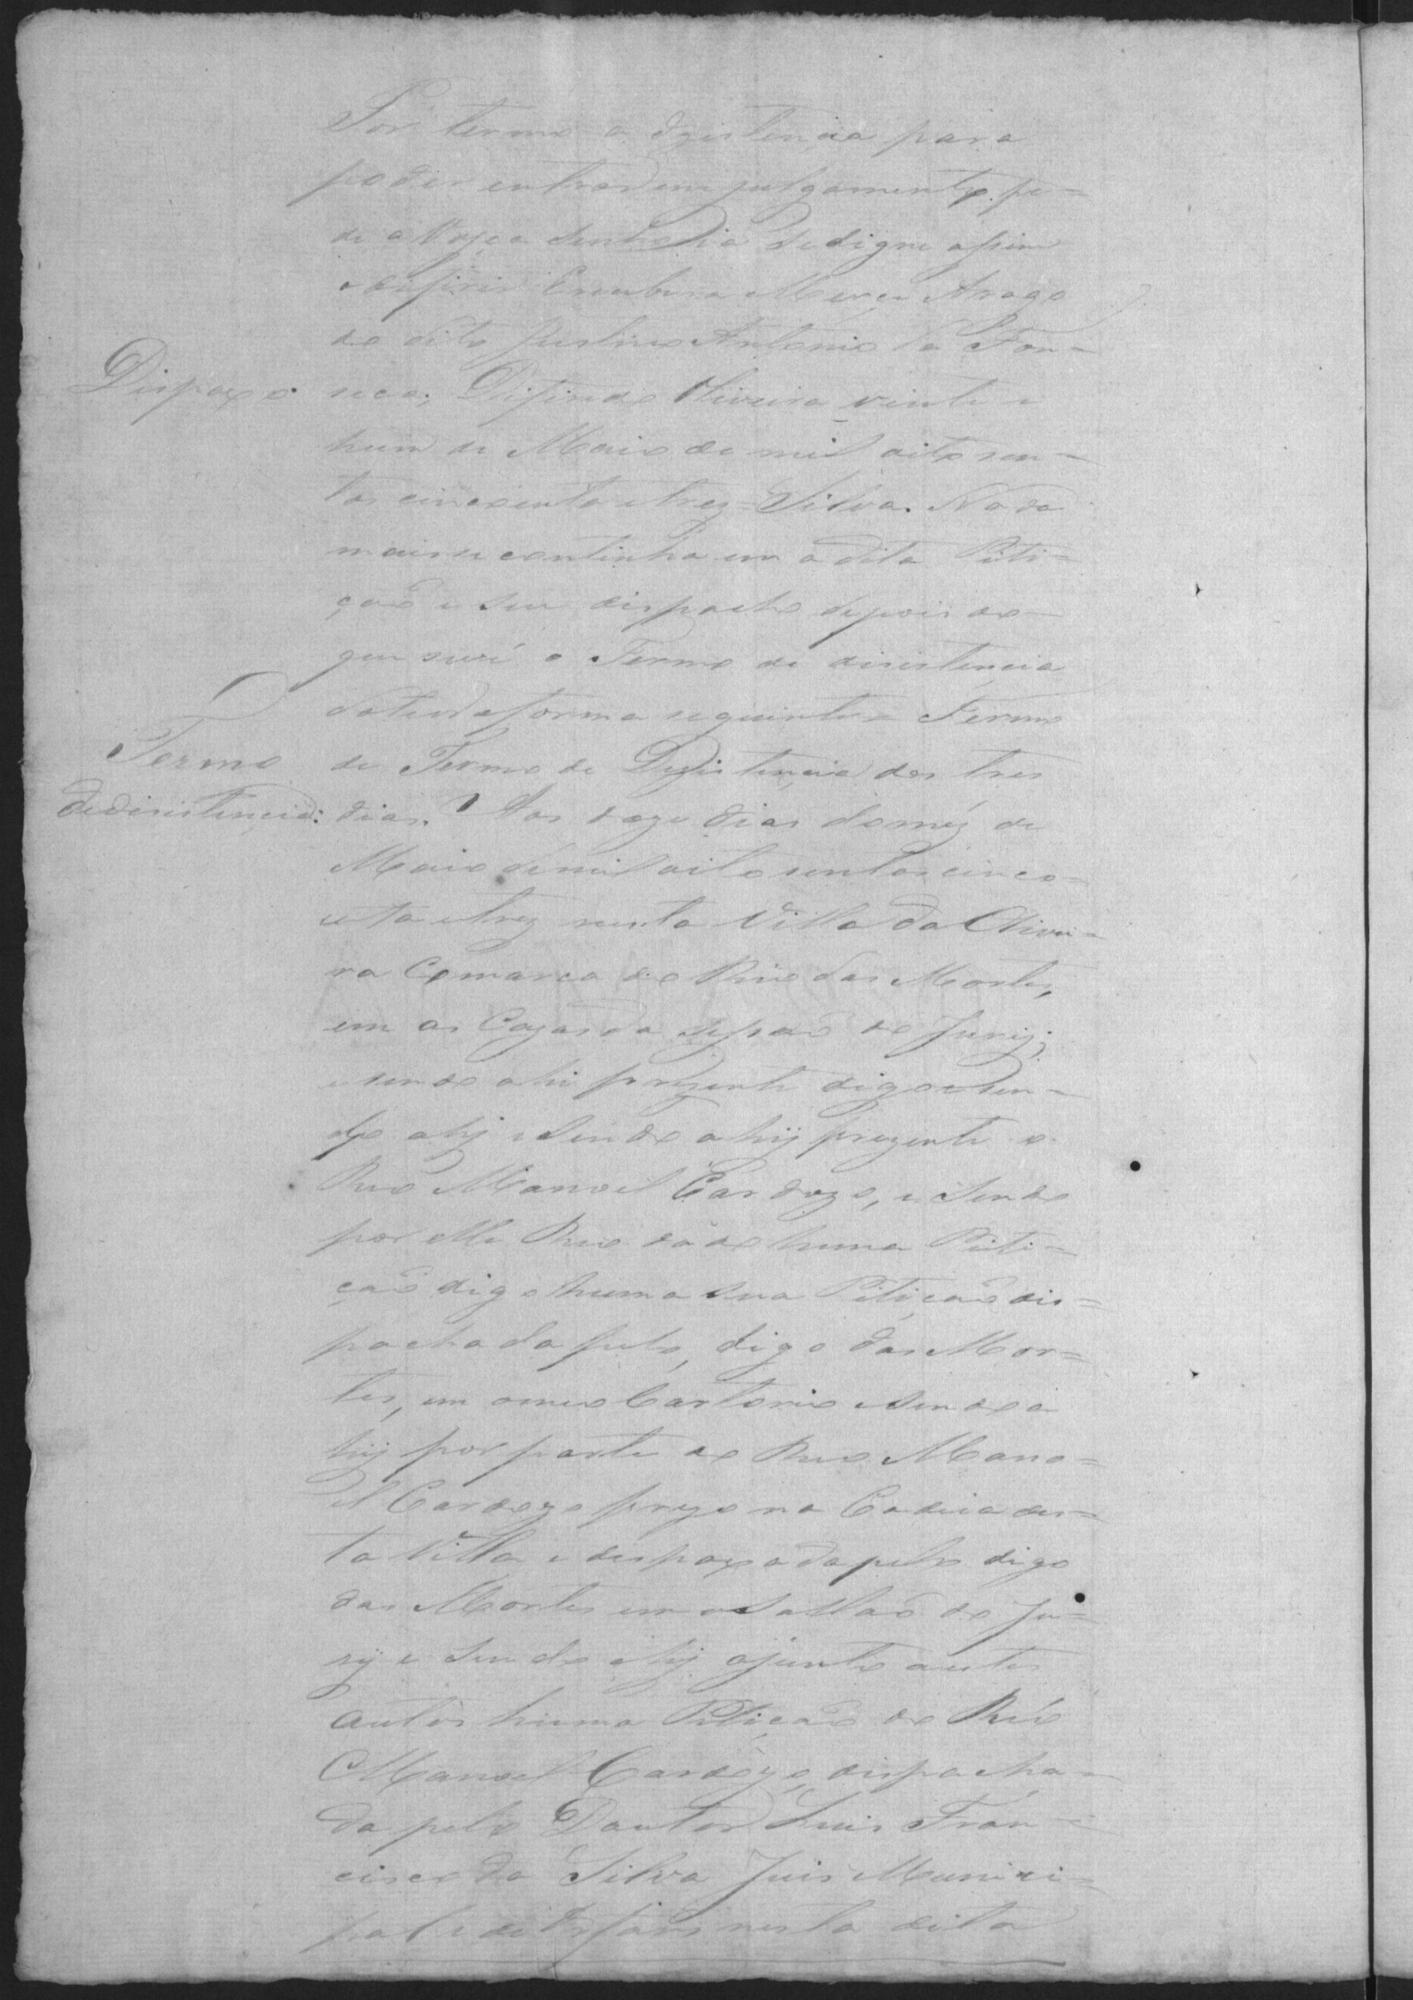 Por termo a dezistencia para
poder entrar em julgamento pe-
de a Vossa Senhoria se digne assim
o diferir Recebera Merce Arogo
do dito Justino Antonio da Fon-
Dispaxo seca, Difirido Oliveira vinte e
hum de Maio de mil oito sen-
tos cincoenta e trez = Silva. Nada
mais se continha em a dita Piti-
çaõ e seu dispacho depois do
que se vê o Termo de disistencia
da forma seguinte = Termo
Termo de Termo de Dezistencia dos tres
dedisistencia: dias. Aos doze dias do mez de
Maio de mil oito sentos cinco-
enta e trez nesta Villa da Olivei-
ra Comarca do Rio das Mortes,
em as Cazas da sessaõ do Jurij;
e sendo ahi prezente digo e sen-
do ahij e sendo ahij prezente o
Reo Manoel Cardozo, e sendo
por elle Reo dado huma Piti-
çaõ digo huma sua Pitiçaõ dis-
pachada pelo, digo das Mor-
tes, em o meo Cartorio e sendo a
hij por parte do Reo Mano-
el Cardozo prezo na Cadeia des-
ta Villa e despaxada pelo digo
das Mortes em a Sallaõ do Ju-
rij e sendo ahij ajunto a estes
autos huma Pitiçaõ do Réo
Manoel Cardozo, dispacha-
da pelo Doutor Luis Fran-
cisco da Silva Juis Munici-
pal e de Orfaõs nesta dita